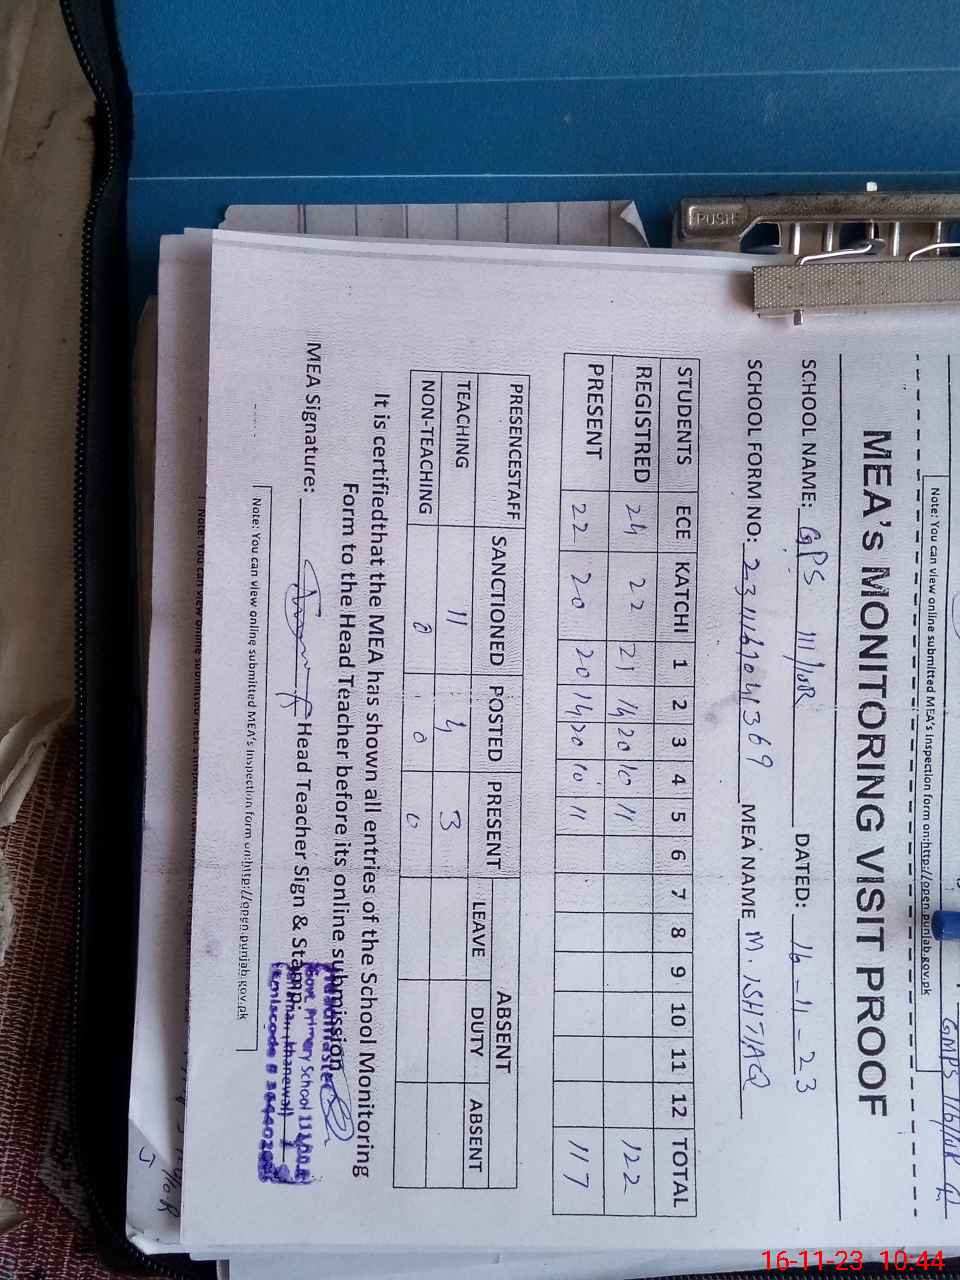 PUSH
GMPS
Note: You can view online submitted MEA's Inspection form on:http://open.punjab.gov.pk
MEA's MONITORING VISIT PROOF
SCHOOL NAME: GPS 111/10R DATED: 16-11-23
SCHOOL FORM NO: MEA NAME M. ISHTIAQ
STUDENTS ECE KATCHI 1 2 3 4 5 6 7 8 9 10 11 12 TOTAL
REGISTRED 24 22 21 14 20 10 11 122
PRESENT 22 20 20 14 20 10 11 117
PRESENCESTAFF SANCTIONED POSTED PRESENT ABSENT
LEAVE DUTY ABSENT
TEACHING 11 4 3
NON-TEACHING 0 0 0
It is certifiedthat the MEA has shown all entries of the School Monitoring
Form to the Head Teacher before its online submission
MEA Signature: Head Teacher Sign & Stamp:
Govt. Primary School 111/10R
Khanewal
Note: You can view online submitted MEA's Inspection form on:http://open.punjab.gov.pk
16-11-23 10:44